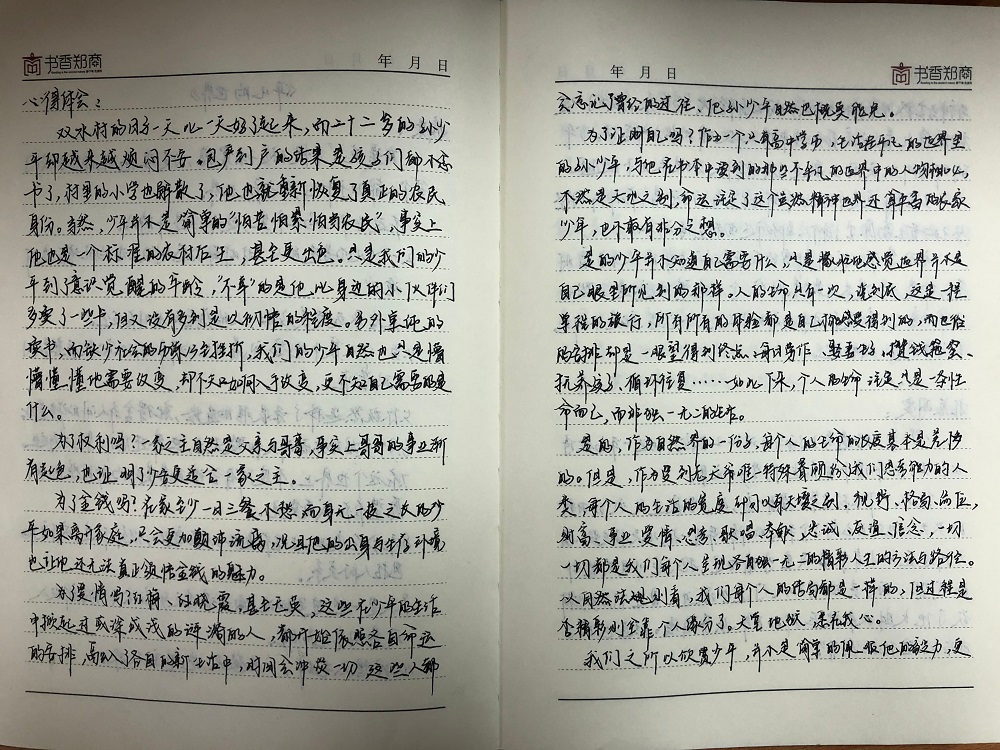 书香郑商
年 月 日
心得体会：
双水村的日子一天比一天好了起来，而二十二岁的孙少
平却越来越烦闷不安。包产到户的结果是孩子们都不念
书了，村里的小学也解散了，他也就重新恢复了真正的农民
身份。当然，少年并不是简单的“怕苦怕累怕当农民”，事实上
他也是一个标准的农村后生，甚至更出色。只是我们的少
年到了意识觉醒的年龄，“不幸”的是他比身边的小伙伴们
多读了一些书，但又没有多到足以彻悟的程度。另外单纯的
读书，而缺少社会的历练，我们的少年自然也只是懵
懵懂懂地需要改变，却不知如何入手改变，更不知自己需要的是
什么。
为了权利吗？一家之主自然是父亲与哥哥，事实上哥哥的事业渐
有起色，也证明了少安更适合一家之主。
为了金钱吗？在家至少一日三餐不愁，而身无一技之长的少
年如果离开家庭，只会更加颠沛流离，况且他的出身与生存环境
也让他还无法真正领悟金钱的魅力。
为了爱情吗？红梅，红晓霞，甚至，这些在少年的生活
中掀起过或深或浅的涟漪的人，都开始依照各自命运
的安排，融入了各自的新生活中，时间会冲淡一切，这些人都
年 月 日
书香郑商
会忘记了曾经的过往，他孙少平自然也概莫能免。
为了证明自己吗？作为一个只有高中学历，生活在平凡的世界里
的孙少年，与他在书本中读到的那些不平凡的世界中的人物相比，
不啻是天地之别，命运注定了这个虽然精神世界还算丰富的农家
少年，也不敢有非分之想。
是的少年并不知道自己需要什么，只是懵懂地感觉世界并不是
自己眼里所见到的那样。人的生命只有一次，说到底，这是一程
单程的旅行，所有所有的体验都是自己能感受得到的，而世俗
的安排却是一眼望得到终点：每日劳作、娶妻生子、攒钱箍窑、
抚养孩子，循环往复……如此下来，个人的生命注定只是一条性
命而已，而非独一无二的生存。
是的，作为自然界的一份子，每个人的生命的长度基本是恒定
的。但是，作为受到老天爷唯一特殊眷顾给我们思考能力的人
类，每个人的生活的宽度却可以有天壤之别。视野、格局、地位，
财富、事业、爱情、思考、歌唱、奉献、忠诚、友谊、信念，一切
一切都是我们每个人呈现各自独一无二的精彩人生的方法与路径。
以自然法规则看，我们每个人的结局都是一样的，但过程是
否精彩则全靠个人缘分了。天堂地狱，源于我心。
我们之所以欣赏少年，并不是简单的佩服他的毅力，更